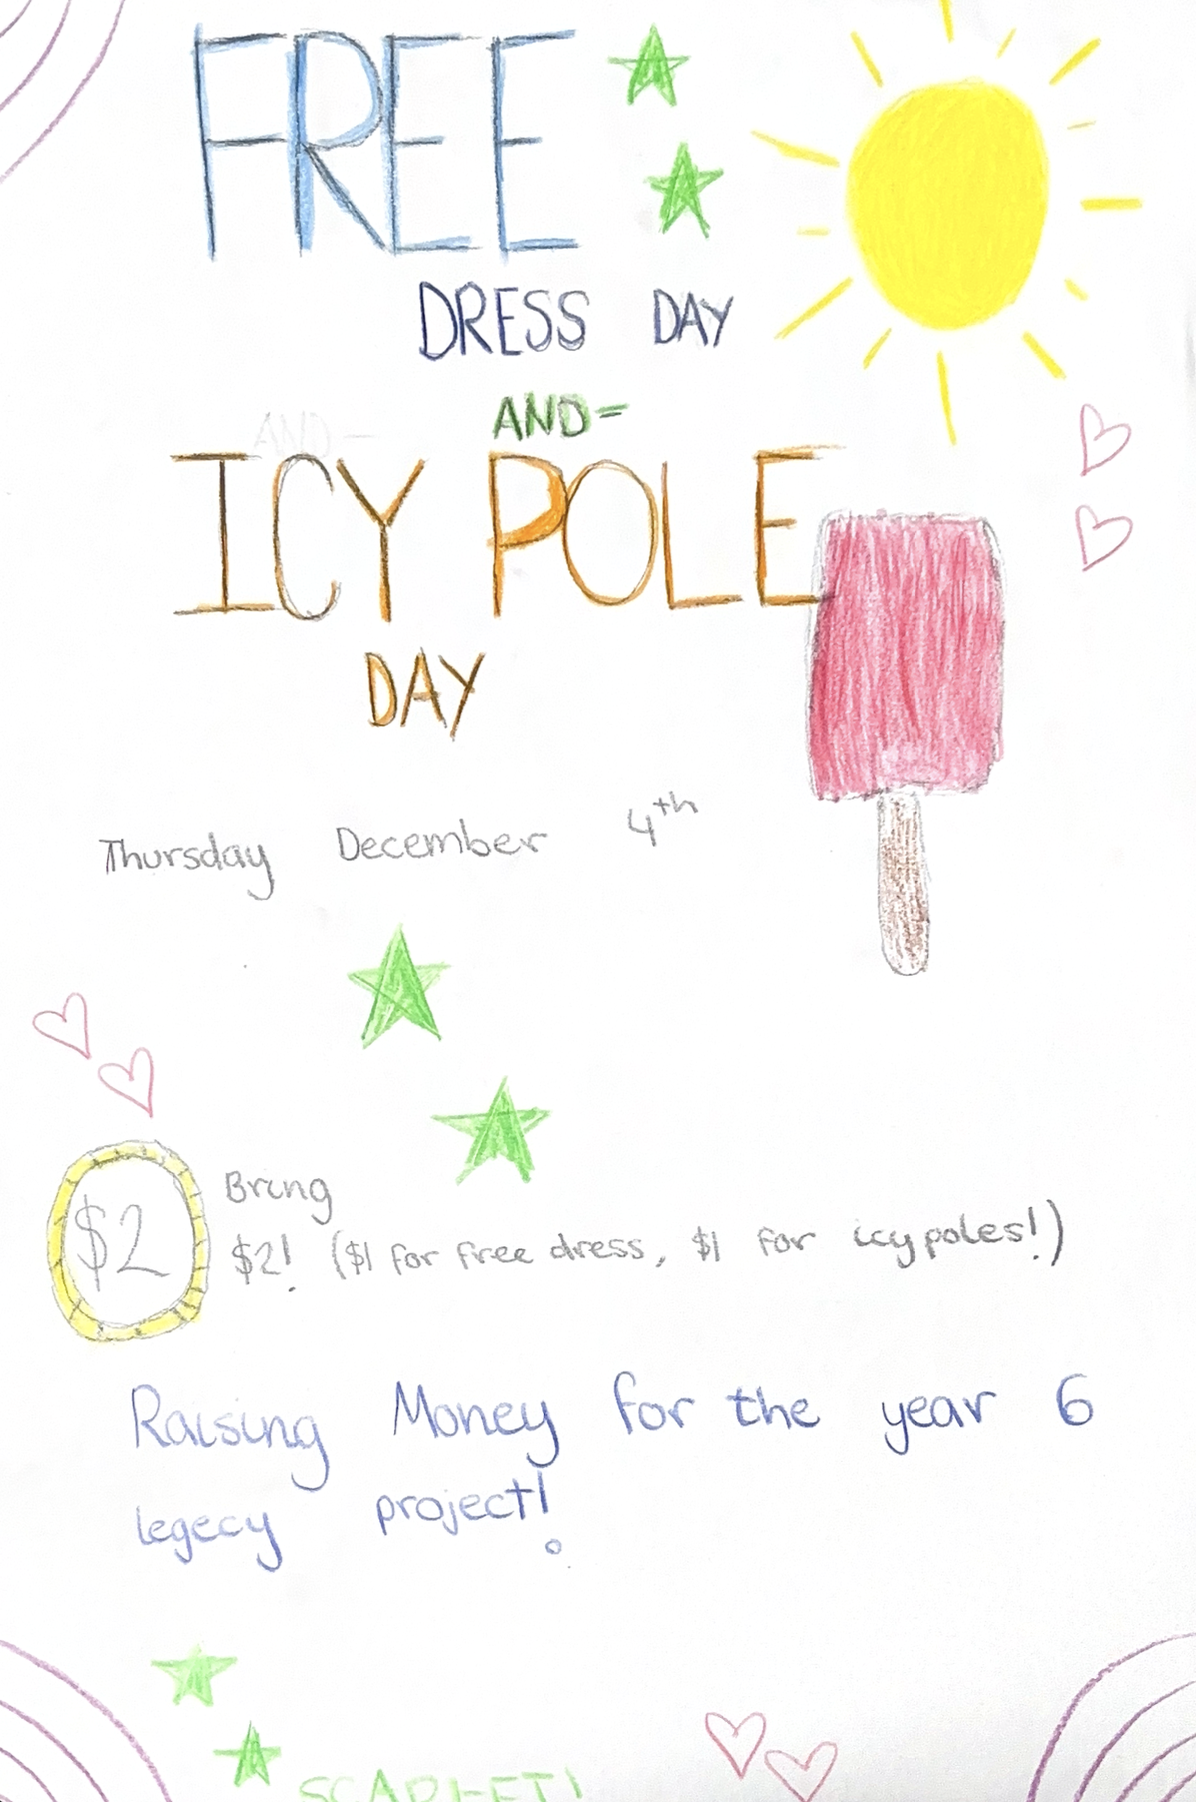 FREE
DRESS DAY
AND-
AND-
ICY POLE
DAY
Thursday December 4th
$2
Bring
$2! ($1 for free dress, $1 for icypoles!)
Raising Money for the year 6
legecy project!
SCARLET!